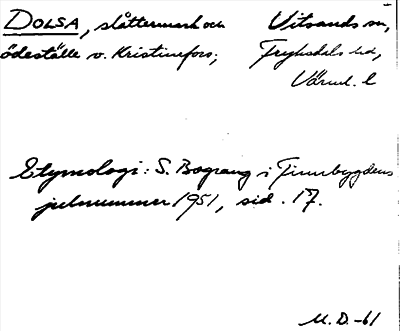 DOLSA, slåttermark och Vitsands sn,
ödeställe v. Kristinefors; Fryksdals hd,
Värml. l
Etymologi: S. Bograng i Finnbygdens
julnummer 1951, sid. 17.
M.D.-61